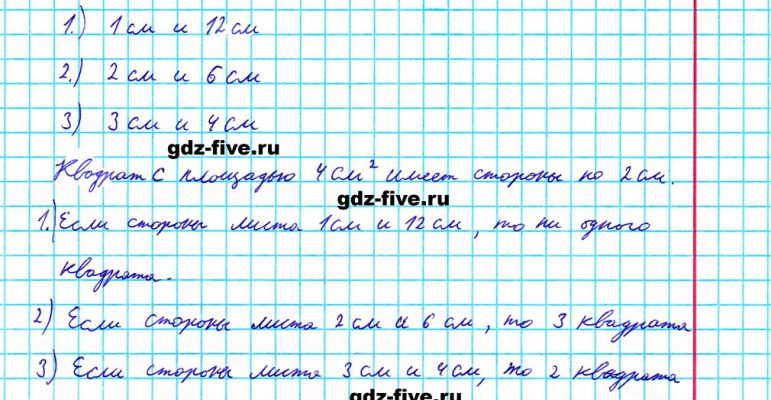 1.) 1 см и 12 см
2.) 2 см и 6 см
3) 3 см и 4 см
gdz-five.ru
Квадрат с площадью 4 см² имеет стороны по 2 см.
gdz-five.ru
1.) Если стороны листа 1 см и 12 см, то ни одного
квадрата.
2) Если стороны листа 2 см и 6 см, то 3 квадрата
3) Если стороны листа 3 см и 4 см, то 2 квадрата
gdz-five.ru